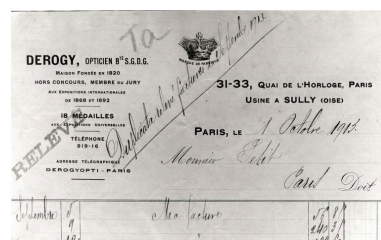 Ta
DEROGY, OPTICIEN Bté S.G.D.G.
MAISON FONDÉE EN 1820
HORS CONCOURS, MEMBRE DU JURY
AUX EXPOSITIONS INTERNATIONALES
DE 1868 ET 1892
18 MÉDAILLES
AUX EXPOSITIONS UNIVERSELLES
TÉLÉPHONE
819-16
ADRESSE TÉLÉGRAPHIQUE
DEROGYOPTI-PARIS
RELEVÉ
MARQUE DE FABRIQUE
Duplicata relevé factures Septembre 1913.
31-33, QUAI DE L'HORLOGE, PARIS
USINE A SULLY (OISE)
PARIS, LE 1 Octobre 1913.
Monsieur
Paris Doit
Septembre 5 Ma facture
9